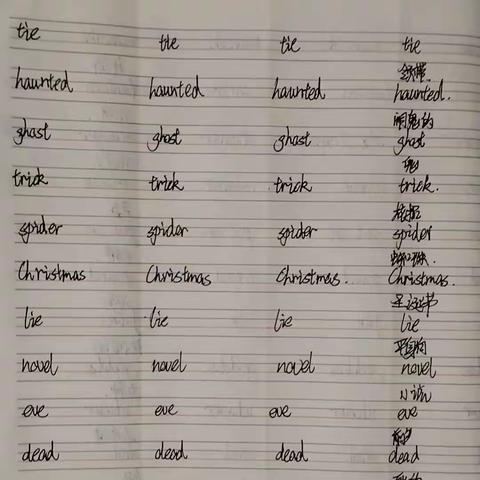 tie tie tie tie
领带
haunted haunted haunted haunted.
闹鬼的
ghost ghost ghost ghost
鬼
trick trick trick trick.
spider spider spider spider
蜘蛛.
Christmas Christmas Christmas. Christmas.
圣诞节
lie lie lie lie
平躺
novel novel novel novel
小说
eve eve eve eve
前夕
dead dead dead dead